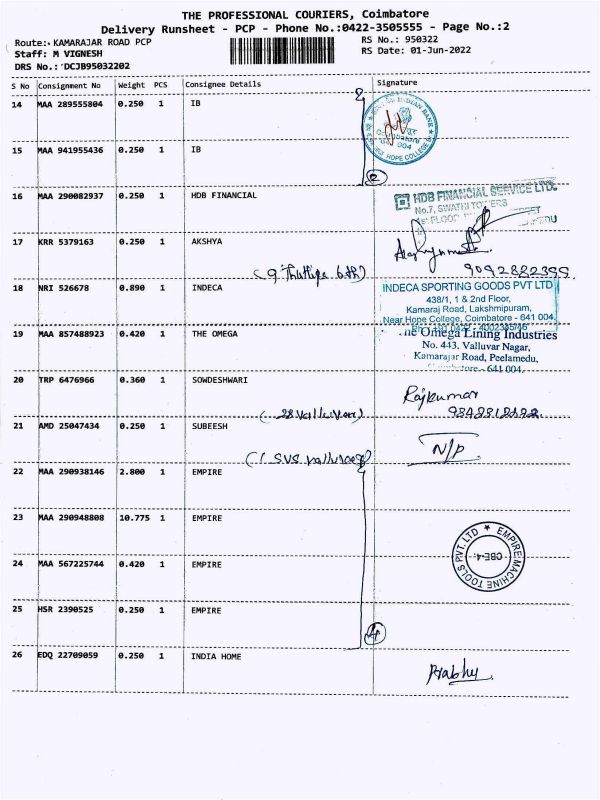 THE PROFESSIONAL COURIERS, Coimbatore
Delivery Runsheet - PCP - Phone No.:0422-3505555 - Page No.:2
Route: KAMARAJAR ROAD PCP
RS No.: 950322
Staff: M VIGNESH
RS Date: 01-Jun-2022
DRS No.: DCJB95032202
S No Consignment No Weight PCS Consignee Details Signature
14 MAA 289555804 0.250 1 IB
INDIAN BANK
HOPE COLLEGE
15 MAA 941955436 0.250 1 IB
2
16 MAA 290082937 0.250 1 HDB FINANCIAL
HDB FINANCIAL SERVICE LTD.
No.7, SWATHI TOWERS
FLOOR
17 KRR 5379163 0.250 1 AKSHYA
9092882399
18 NRI 526678 0.890 1 INDECA
INDECA SPORTING GOODS PVT LTD
438/1, 1 & 2nd Floor,
Kamaraj Road, Lakshmipuram,
Near Hope College, Coimbatore - 641 004.
19 MAA 857488923 0.420 1 THE OMEGA
Omega Lining Industries
No. 443, Valluvar Nagar,
Kamarajar Road, Peelamedu,
641 004.
20 TRP 6476966 0.360 1 SOWDESHWARI
Rajkumar
21 AMD 25047434 0.250 1 SUBEESH
N/P
22 MAA 290938146 2.800 1 EMPIRE
23 MAA 290948808 10.775 1 EMPIRE
EMPIRE MACHINE TOOLS PVT. LTD
CBE-4
24 MAA 567225744 0.420 1 EMPIRE
25 HSR 2390525 0.250 1 EMPIRE
4
26 EDQ 22709059 0.250 1 INDIA HOME
Prabhu